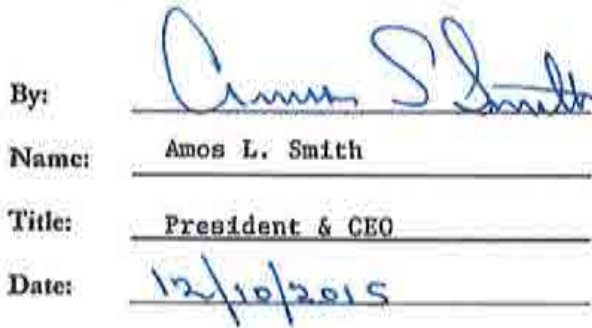 By: Amos L Smith
Name: Amos L. Smith
Title: President & CEO
Date: 12/10/2015